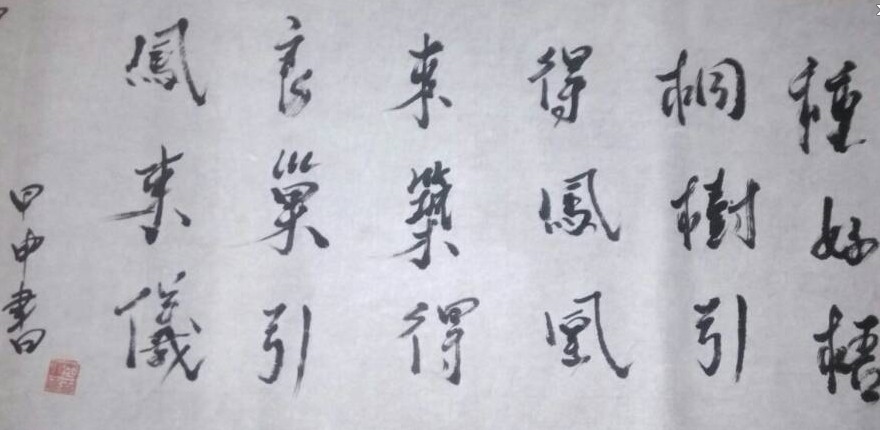 種好梧
桐樹引
得鳳凰
來築得
良巢引
鳳來儀
甲申書